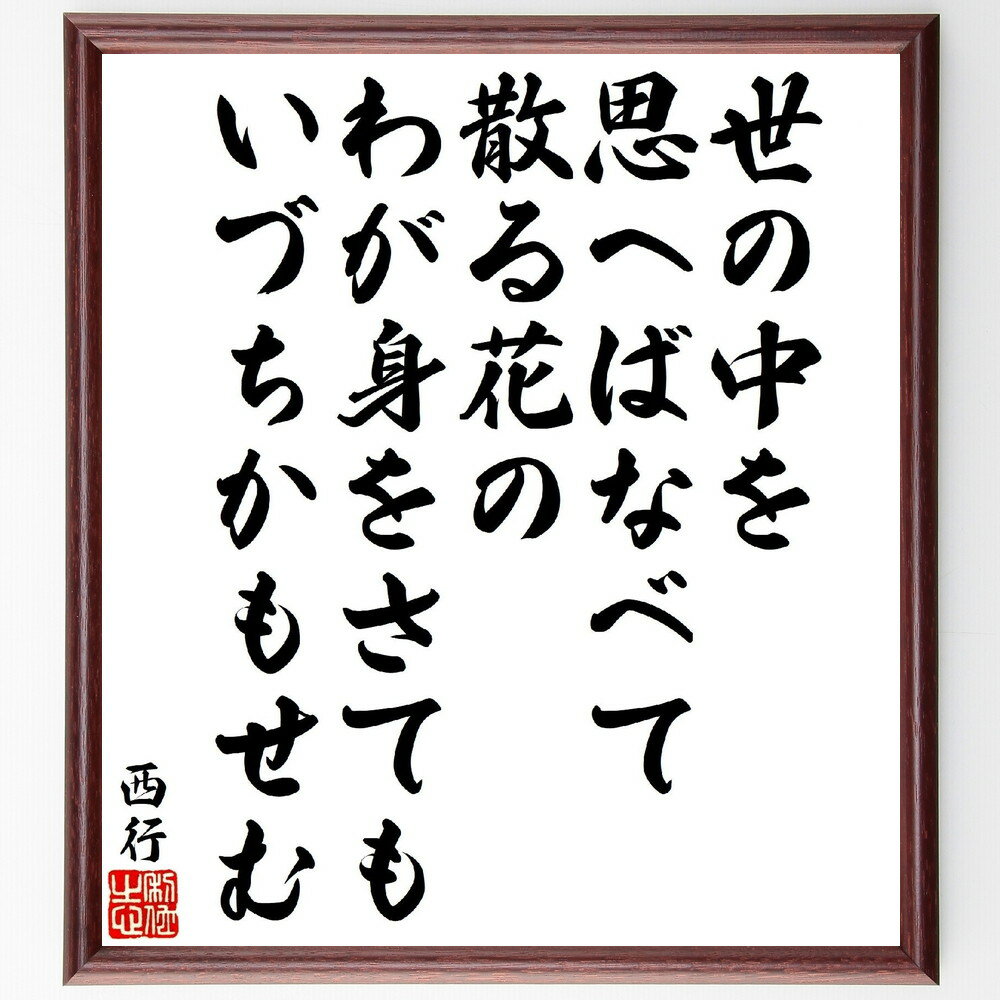 世の中を
思へばなべて
散る花の
わが身をさても
いづちかもせむ
西行